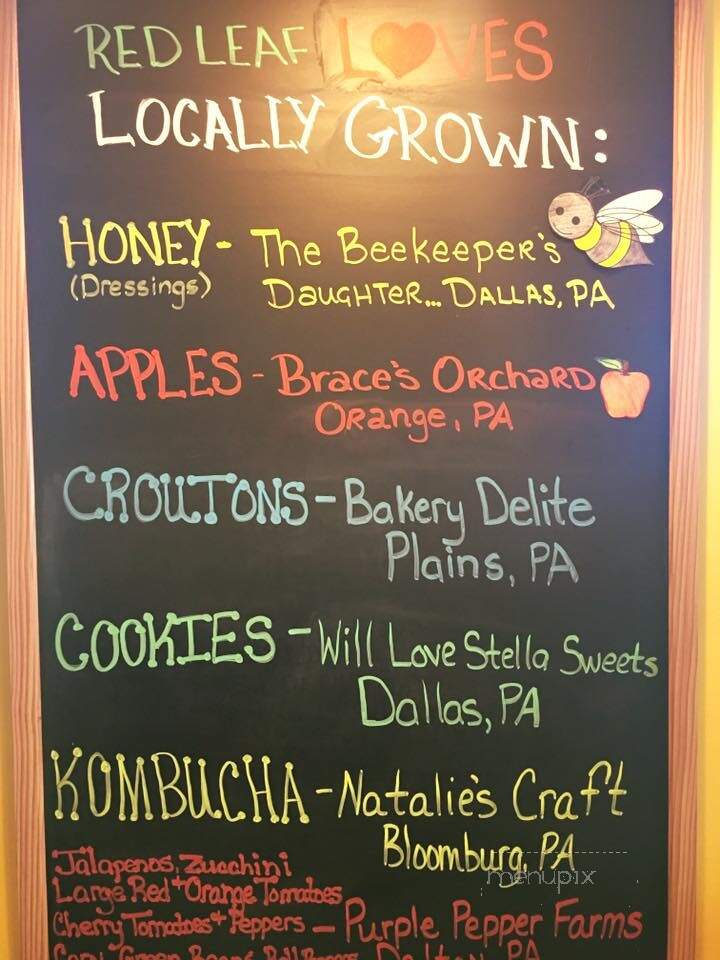 RED LEAF LOVES
LOCALLY GROWN:
HONEY - The Beekeeper's
(Dressings) DAUGHTER... DALLAS, PA
APPLES - Brace's ORCHARD
ORange, PA
CROUTONS - Bakery Delite
Plains, PA
COOKIES - Will Love Stella Sweets
Dallas, PA
KOMBUCHA - Natalie's Craft
Bloomburg, PA
menupix
Jalapenos, Zucchini
Large Red + Orange Tomatoes
Cherry Tomatoes + Peppers - Purple Pepper Farms
Green PA